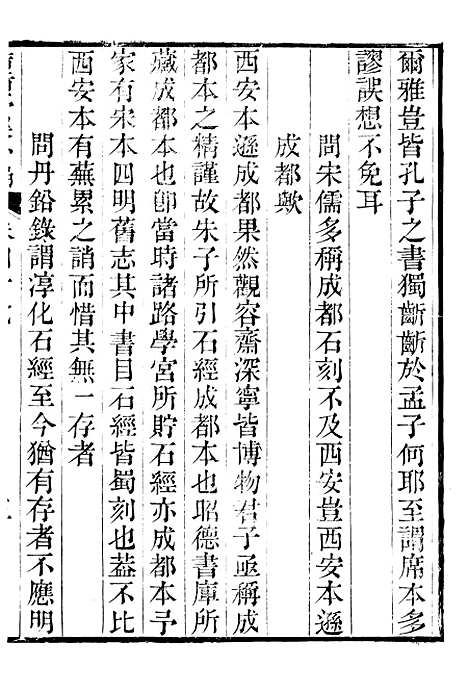 爾雅豈皆孔子之書獨齗齗於孟子何耶至謂席本多
謬誤想不免耳
問宋儒多稱成都石刻不及西安豈西安本遜
成都歟
西安本遜成都果然觀容齋深寧皆博物君子亟稱成
都本之精謹故朱子所引石經成都本也昭德書庫所
藏成都本也卽當時諸路學宮所貯石經亦成都本予
家有宋本四明舊志其中書目石經皆蜀刻也葢不比
西安本有蕪累之誚而惜其無一存者
問丹鉛錄謂淳化石經至今猶有存者不應明